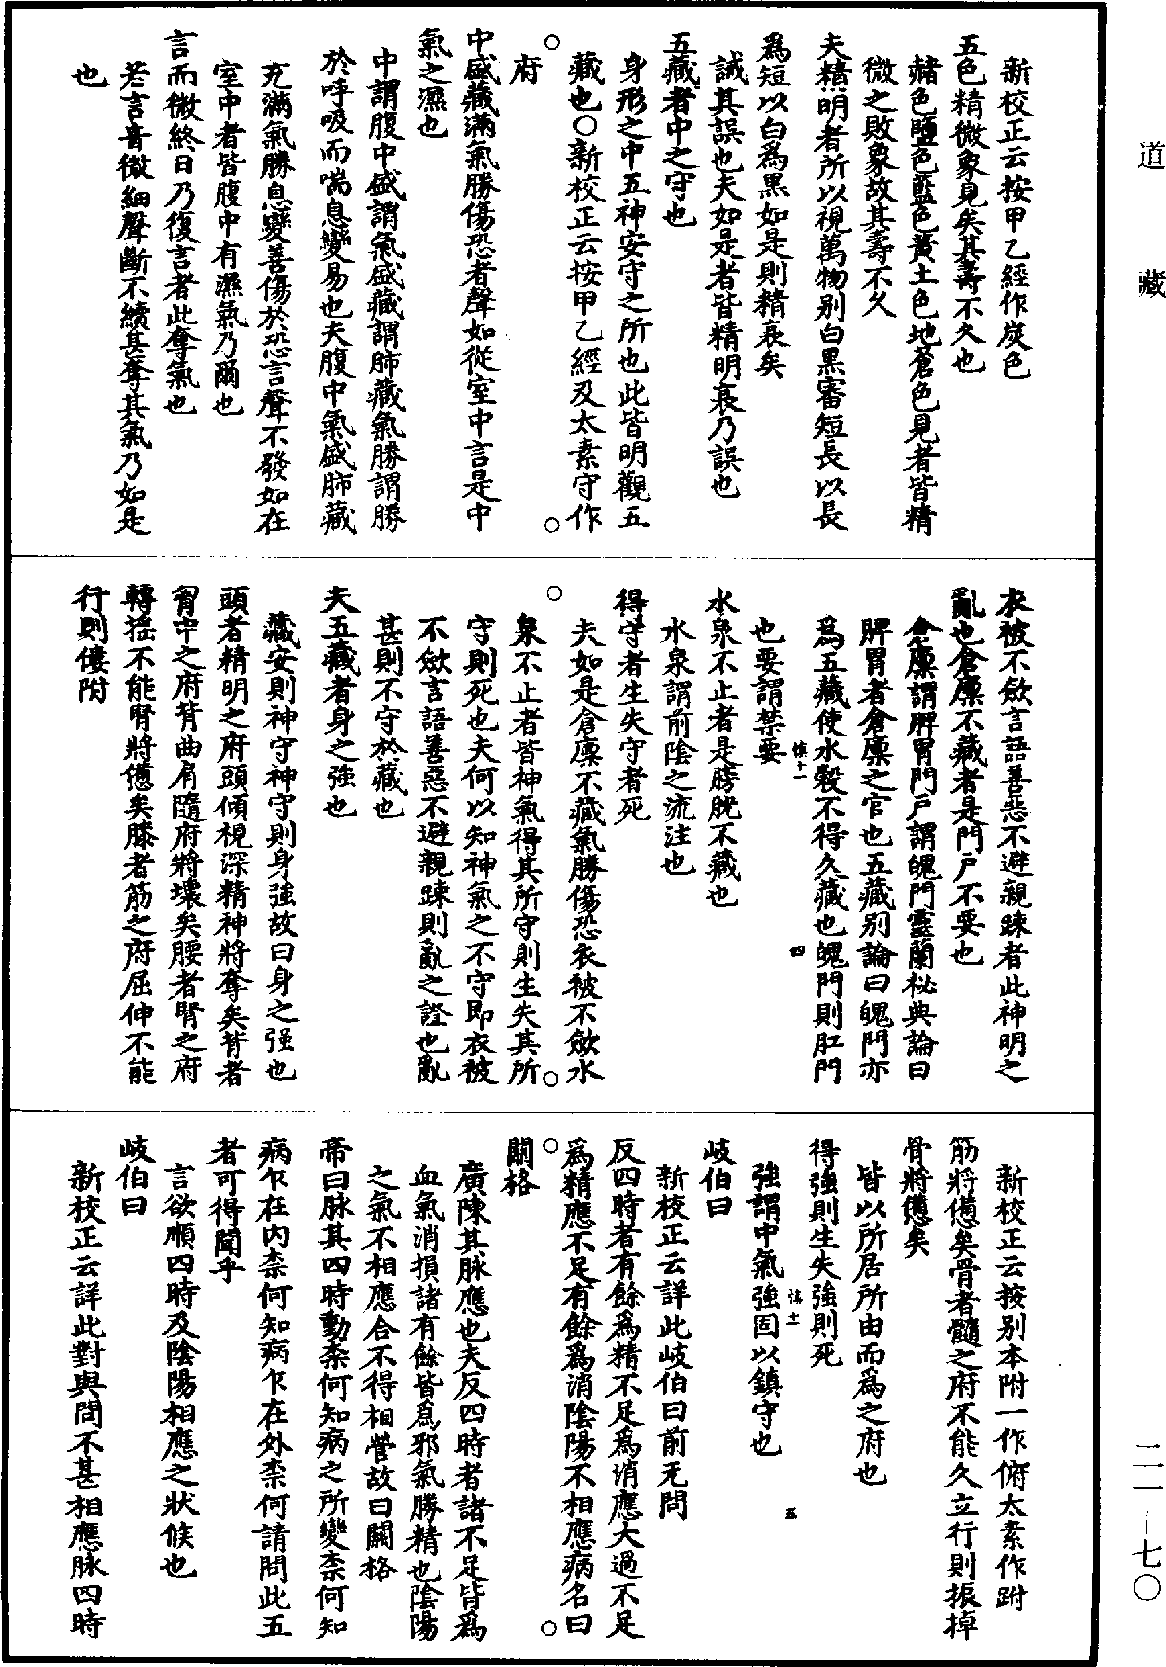 道藏
新校正云按甲乙經作炭色
五色精微象見矣其壽不久也
赭色鹽色藍色黃土色地蒼色見者皆精
微之敗象故其壽不久
夫精明者所以視萬物别白黑審短長以長
為短以白為黑如是則精衰矣
誡其誤也夫如是者皆精明衰乃誤也
五藏者中之守也
身形之中五神安守之所也此皆明觀五
藏也○新校正云按甲乙經及太素守作
府
中盛藏滿氣勝傷恐者聲如從室中言是中
氣之濕也
中謂腹中盛謂氣盛藏謂肺藏氣勝謂勝
於呼吸而喘息變易也夫腹中氣盛肺藏
充滿氣勝息變善傷於恐言聲不發如在
室中者皆腹中有濕氣乃爾也
言而微終日乃復言者此奪氣也
若言音微細聲斷不續其奪其氣乃如是
也
衣被不斂言語善惡不避親踈者此神明之
亂也倉廩不藏者是門户不要也
倉廩謂脾胃門户謂魄門靈蘭秘典論曰
脾胃者倉廩之官也五藏别論曰魄門亦
為五藏使水穀不得久藏也魄門則肛門
也要謂禁要
慎十一
四
水泉不止者是膀胱不藏也
水泉謂前陰之流注也
得守者生失守者死
夫如是倉廩不藏氣勝傷恐衣被不斂水
泉不止者皆神氣得其所守則生失其所
守則死也夫何以知神氣之不守即衣被
不斂言語善惡不避親踈則亂之證也亂
甚則不守於藏也
夫五藏者身之強也
藏安則神守神守則身強故曰身之强也
頭者精明之府頭傾視深精神將奪矣背者
胷中之府背曲肩隨府將壞矣腰者腎之府
轉揺不能腎將憊矣膝者筋之府屈伸不能
行則僂附
新校正云按别本附一作俯太素作跗
筋將憊矣骨者髓之府不能久立行則振掉
骨將憊矣
皆以所居所由而為之府也
得強則生失強則死
強謂中氣強固以鎮守也
慎十一
五
岐伯曰
新校正云詳此岐伯曰前无問
反四時者有餘為精不足為消應太過不足
為精應不足有餘為消陰陽不相應病名曰
關格
廣陳其脉應也夫反四時者諸不足皆為
血氣消損諸有餘皆為邪氣勝精也陰陽
之氣不相應合不得相營故曰關格
帝曰脉其四時動柰何知病之所變柰何知
病乍在内柰何知病乍在外柰何請問此五
者可得聞乎
言欲順四時及陰陽相應之狀候也
岐伯曰
新校正云詳此對與問不甚相應脉四時
二一–七〇